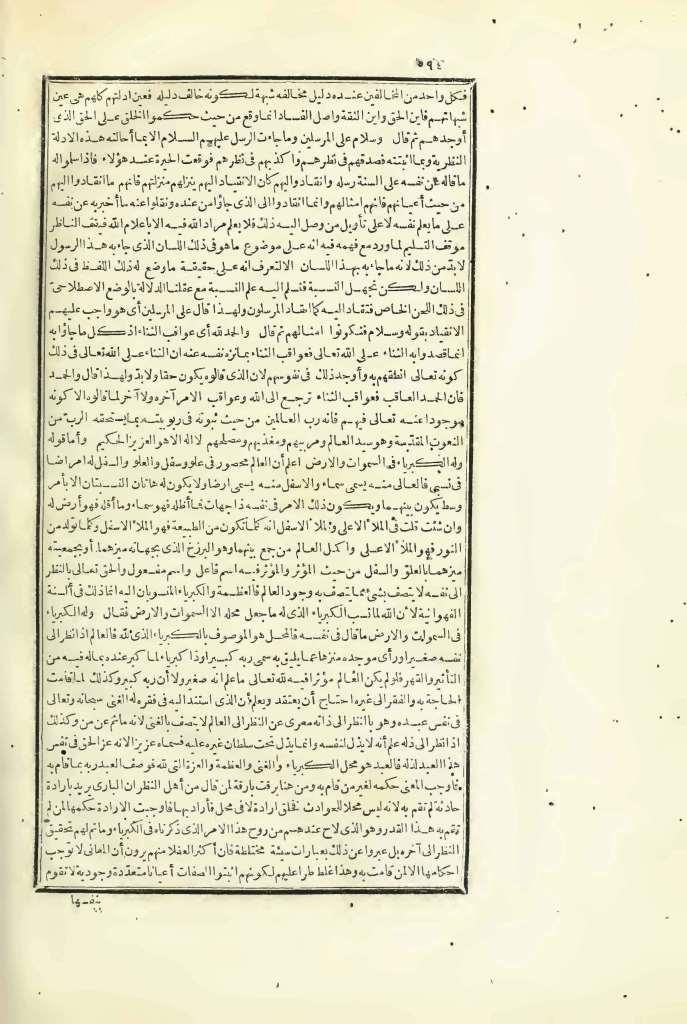 ٥٩٤
فكل واحد من المخالفين عنده دليل مخالفه شبهة لكونه خالف دليله فعين ادلتهم كلهم هى عين
شبهاتهم فاين الحق واين الثقة واصل الفساد انما وقع من حيث حكموا الخلق على الحق الذى
أوجدهم ثم قال وسلام على المرسلين وما جاءت الرسل عليهم السلام الا بما أحالته هذه الادلة
النظرية وبما أثبتته فصدقهم فى نظرهم واكذبهم فى نظرهم فوقعت الحيرة عند هؤلاء فاذا سلموا له
ما قاله عن نفسه على السنة رسله وانقادوا اليهم كان الانقياد اليهم ينزلهم منزلتهم فانهم ما انقادوا اليهم
من حيث أعيانهم فانهم امثالهم وانما انقادوا الى الذى جاؤا من عنده ونقلوا عنه ما أخبر به عن نفسه
على ما يعلم نفسه لا على تأويل من وصل اليه ذلك فلا يعلم مراد الله فيه الا باعلام الله فيقف الناظر
موقف التسليم لما ورد مع فهمه فيه انه على موضوع ما هو فى ذلك اللسان الذى جاء به هذا الرسول
لا بد من ذلك لانه ما جاء به بهذا اللسان الا لتعرف انه على حقيقة ما وضع له ذلك اللفظ فى ذلك
اللسان ولكن نجهل النسبة فنسلم اليه علم النسبة مع عقلنا الدلالة بالوضع الاصطلاحى
فى ذلك اللحن الخاص فننقاد اليه كما انقاد المرسلون ولهذا قال على المرسلين أى هو واجب عليهم
الانقياد بقوله وسلام فنكونوا امثالهم ثم قال والحمد لله أى عواقب الثناء اذ كل ما جاؤا به
انما قصدوا به الثناء على الله تعالى فعواقب الثناء بما نزه نفسه عنه ان الثناء على الله تعالى فى ذلك
كونه تعالى انطقهم به وأوجد ذلك فى نفوسهم لان الذى قالوه يكون حقا ولا بد ولهذا قال والحمد
فان الحمد العاقب فعواقب الثناء ترجع الى الله وعواقب الامر آخره ولا آخر لما قالوه الا كونه
موجودا عنه تعالى فيهم فانه رب العالمين من حيث ثبوته فى ربوبيته بما يستحقه الرب من
النعوت المقدسة وهو سيد العالم ومربيهم ومغذيهم ومصلحهم لا اله الا هو العزيز الحكيم وأما قوله
وله الكبرياء فى السموات والارض اعلم أن العالم محصور فى علو وسفل والعلو والسفل له امر اضا
فى نسبى فالعالى منه يسمى سماء والاسفل منه يسمى ارضا ولا يكون له هاتان النسبتان الا بأمر
وسط يكون بينهما ويكون ذلك الامر فى نفسه ذا جهات فما أظله فهو سماء وما أقله فهو أرض له
وان شئت قلت فى الملأ الاعلى والملأ الاسفل انه كلما تكون من الطبيعة فهو الملأ الاسفل وكلما تولد من
النور فهو الملأ الاعلى واكمل العالم من جمع بينهما وهو البرزخ الذى بجهاته ميزهما أو بجمعيته
ميزهما بالعلو والسفل من حيث المؤثر والمؤثر فيه اسم فاعل واسم مفعول والحق تعالى بالنظر
الى نفسه لا يتصف بشئ مما يتصف به وجود العالم فالعظمة والكبرياء المنسوبان اليه انما ذلك فى ألسنة
الفهوانية لان الله لما نسب الكبرياء الذى له ما جعل محله الا السموات والارض فقال وله الكبرياء
فى السموات والارض ما قال فى نفسه فالمحل هو الموصوف بالكبرياء الذى لله فالعالم اذا نظر الى
نفسه صغيرا ورأى موجده منزها عما يليق به سمى ربه كبيرا وذا كبرياء لما كبر عنده بما له فيه من
التأثير والقهر فلو لم يكن العالم مؤثرا فيه لله تعالى ما علم انه صغير ولا أن ربه كبير وكذلك لما قامت
الحاجة به والفقر الى غيره احتاج أن يعتقد ويعلم أن الذى استند اليه فى فقره له الغنى سبحانه وتعالى
فى نفس عبده وهو بالنظر الى ذاته معرى عن النظر الى العالم لا يتصف بالغنى لانه ما ثم عن من وكذلك
اذا نظر الى ذله علم أنه لا يذل لنفسه وانما يذل تحت سلطان غيره عليه فسماه عزيزا لانه عز الحق فى نفس
هذا العبد لذله فالعبد هو محل الكبرياء والغنى والعظمة والعزة التى لله فوصف العبد ربه بما قام به
فأوجب المعنى حكمه لغير من قام به ومن هنا برقت بارقة لمن قال من أهل النظر ان البارى يريد بارادة
حادثة لم تقم به لانه ليس محلا للحوادث فخلق ارادة لا فى محل فأراد بها فأوجبت الارادة حكمها لمن لم
تقم به هذا القدر وهو الذى لاح عندهم من روح هذا الامر الذى ذكرناه فى الكبرياء وما تم لهم تحقيق
النظر الى آخره بل عبروا عن ذلك بعبارات سيئة مختلطة فان أكثر العقلاء منهم يرون أن المعانى لا توجب
احكامها الا لمن قامت به وهذا غلط طرا عليهم لكونهم اثبتوا الصفات أعيانا متعددة وجودية لا تقوم
بنفسها